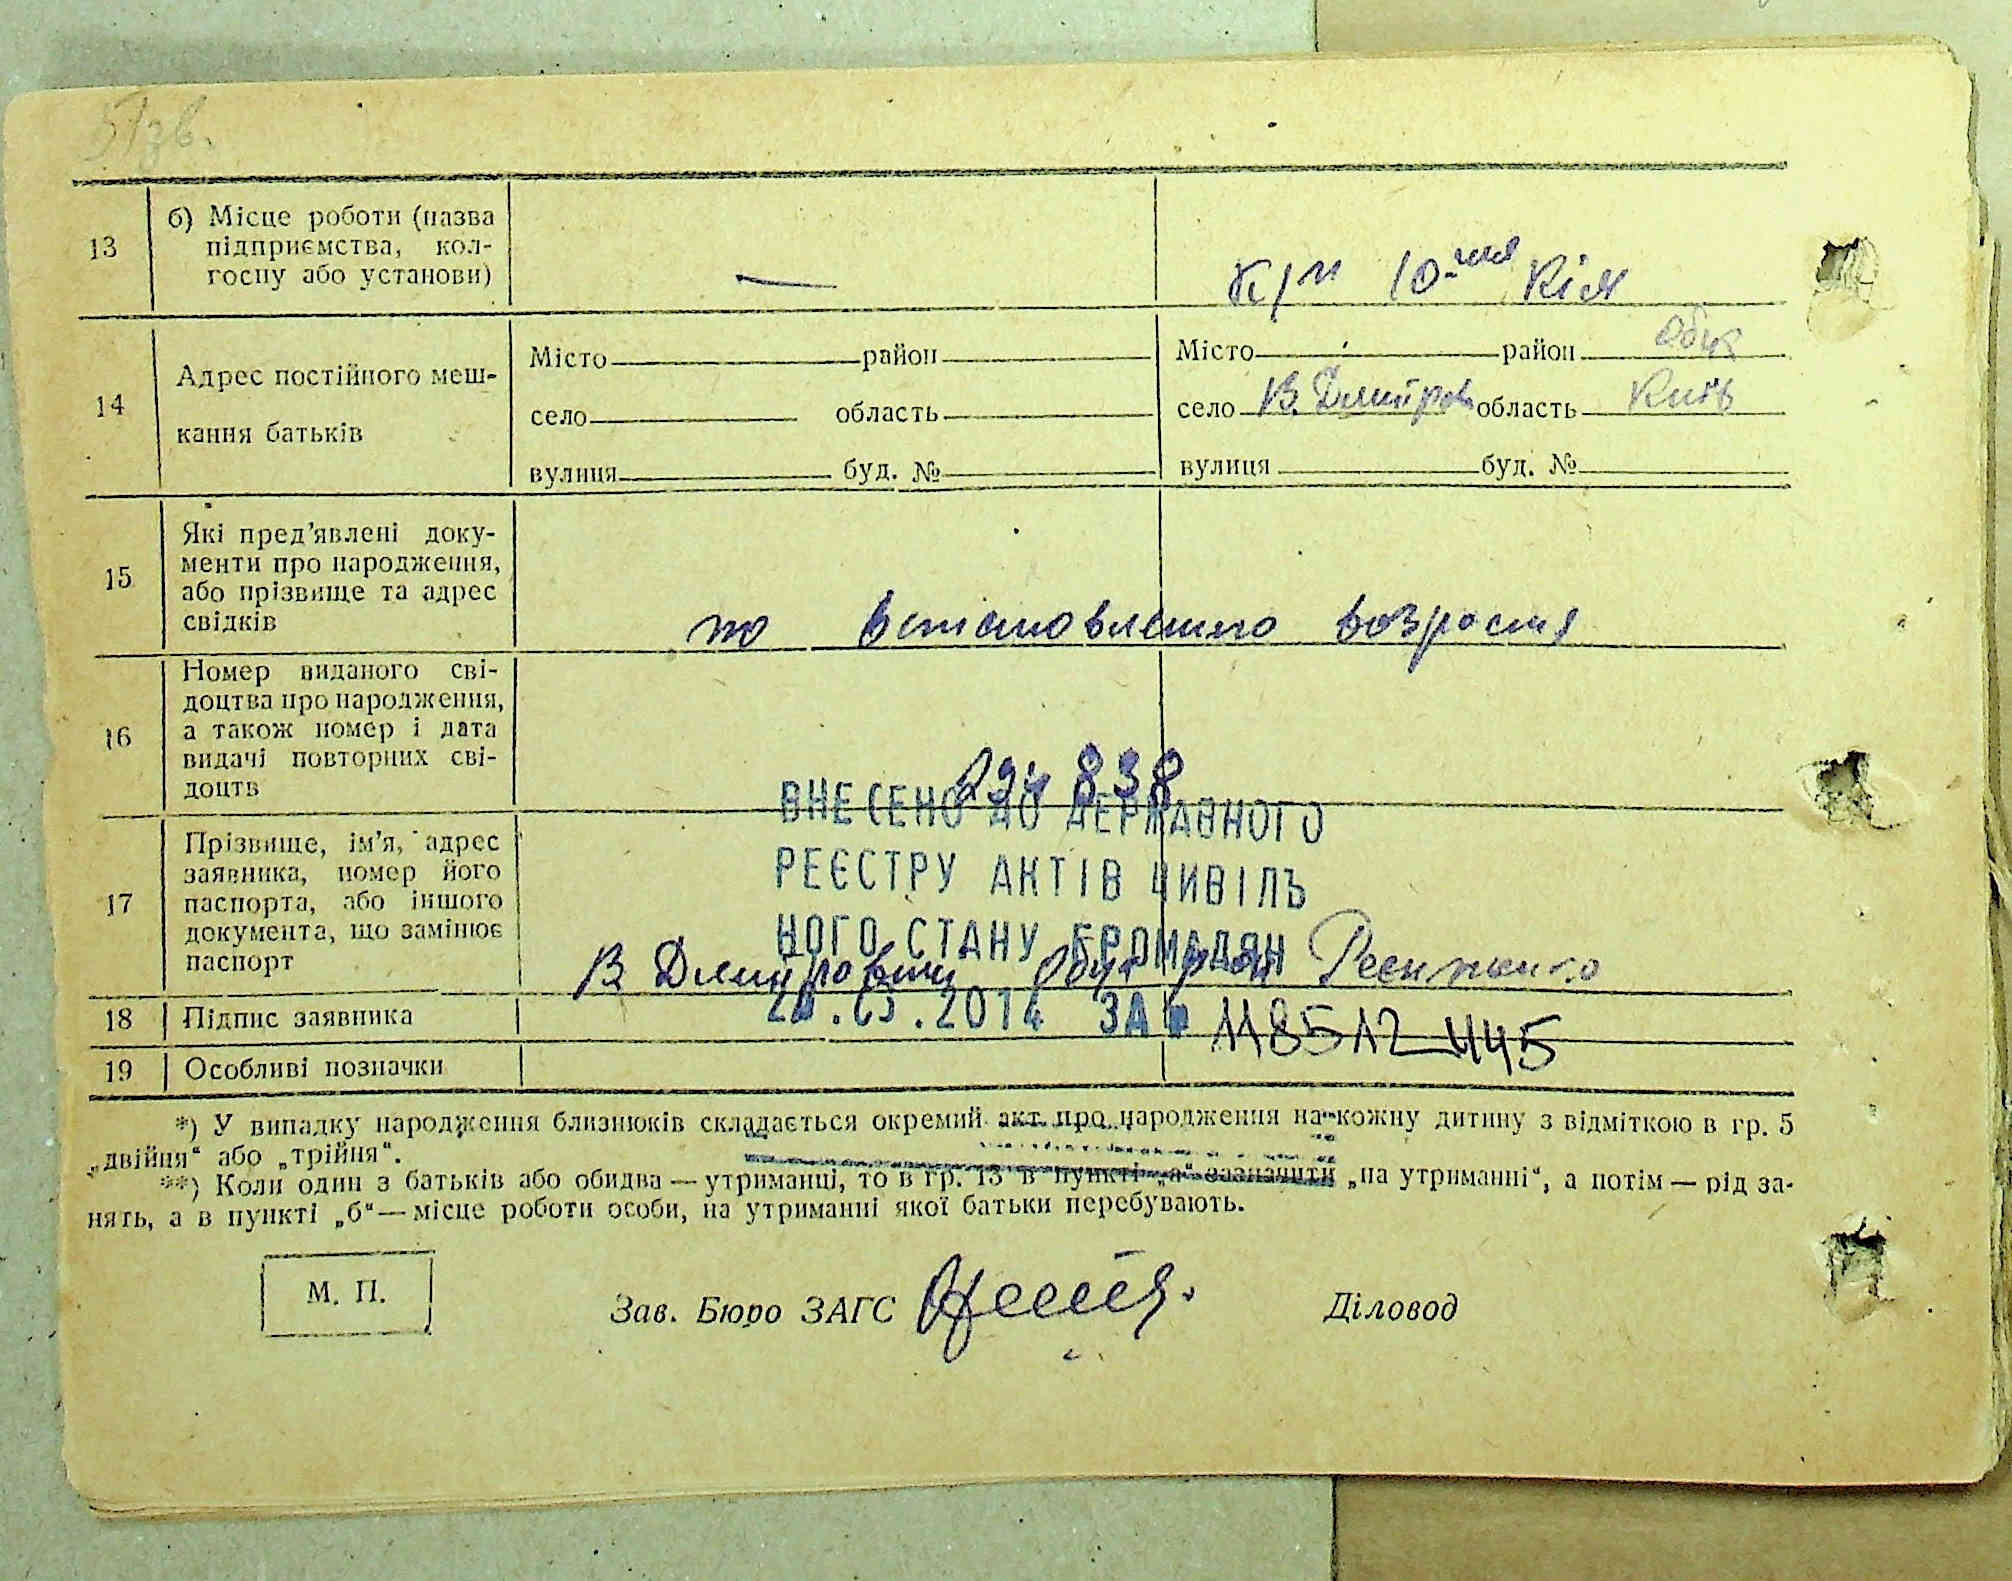 51зв.
13
б) Місце роботи (назва
підприємства, кол-
госпу або установи)
—
К/г 10-чья Кім
14
Адрес постійного меш-
кання батьків
Місто район
село область
вулиця буд. №
Місто район Обух
село В. Дмитров область Київ
вулиця буд. №
15
Які пред'явлені доку-
менти про народження,
або прізвище та адрес
свідків
по встановленню возраста
16
Номер виданого сві-
доцтва про народження,
а також номер і дата
видачі повторних сві-
доцтв
294838
17
Прізвище, ім'я, адрес
заявника, номер його
паспорта, або іншого
документа, що замінює
паспорт
ВНЕСЕНО ДО ДЕРЖАВНОГО
РЕЄСТРУ АКТІВ ЦИВІЛЬ
НОГО СТАНУ ГРОМАДЯН
В Дмитровки Обух
.2014 ЗА 118512445
18
Підпис заявника
19
Особливі позначки
*) У випадку народження близнюків складається окремий акт про народження на кожну дитину з відміткою в гр. 5
„двійня“ або „трійня“.
**) Коли один з батьків або обидва — утриманці, то в гр. 13 в пункті „а“ зазначити „на утриманні“, а потім — рід за-
нять, а в пункті „б“ — місце роботи особи, на утриманні якої батьки перебувають.
М. П.
Зав. Бюро ЗАГС
Діловод